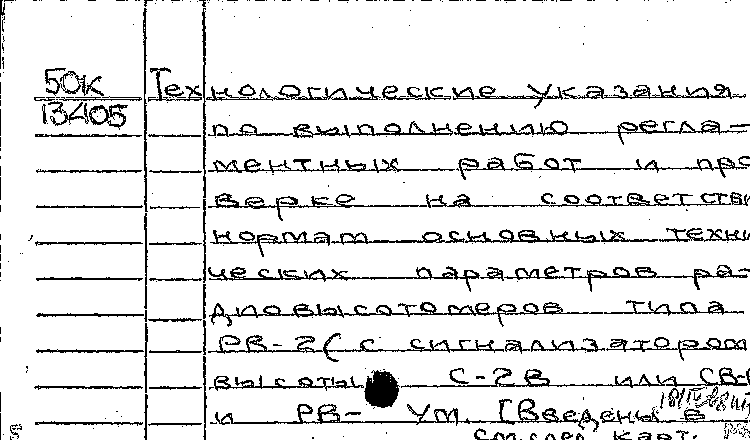 50к
13405
Технологические указания
по выполнению регла-
ментных работ и про
верке на соответстви
нормам основных техни
ческих параметров ра-
диовысотомеров типа
РВ-2 (с сигнализатором
высоты С-2В или СВ-
и РВ- УМ. [Введены в
см. след. карт.